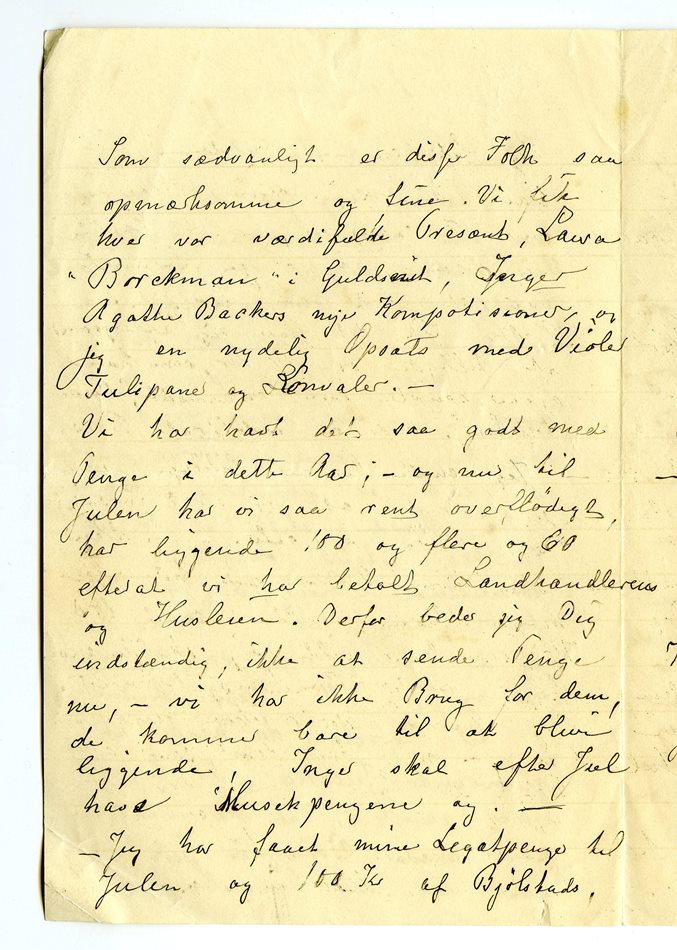 Som sædvanligt er disse Folk saa
opmærksomme og fine. Vi fik
hver vor værdifulde Presænt, Laura
"Borckman" i Guldsnit, Inger
Agathe Backers nye Kompotisioner, og
jeg en nydelig Opsats med Violer
Tulipaner og Konvaler. —
Vi har havt det saa godt med
Penge i dette Aar; – og nu til
Julen har vi saa rent overflödigt,
har liggende 100 og flere og 60
efterat vi har betalt Landhandlerens
og Husleien. Derfor beder jeg Dig
indstændig, ikke at sende Penge
nu, – vi har ikke Brug for dem,
de kommer bare til at blive
liggende, Inger skal efter Jul
have Musekpengene og. —
– Jeg har faaet mine Legatpenge til
Julen og 100 Kr af Bjölstads.